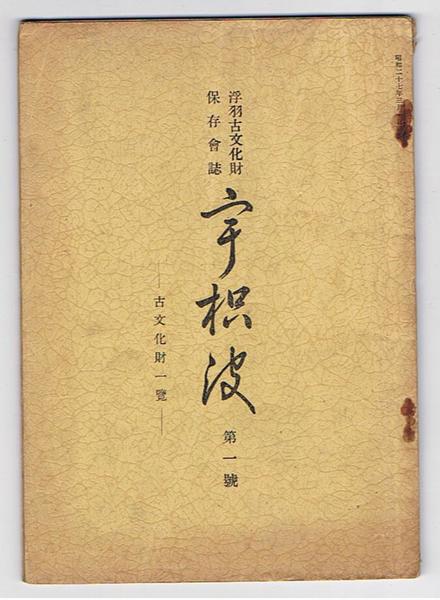 昭和二十七年三月
浮羽古文化財
保存會誌
宇枳波
第一號
―古文化財一覽―